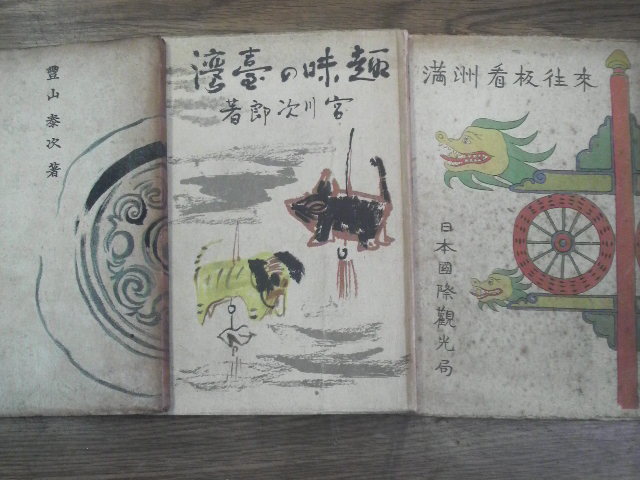 豊山泰次著
趣味の臺灣
宮川次郎著
満洲看板往來
日本國際觀光局